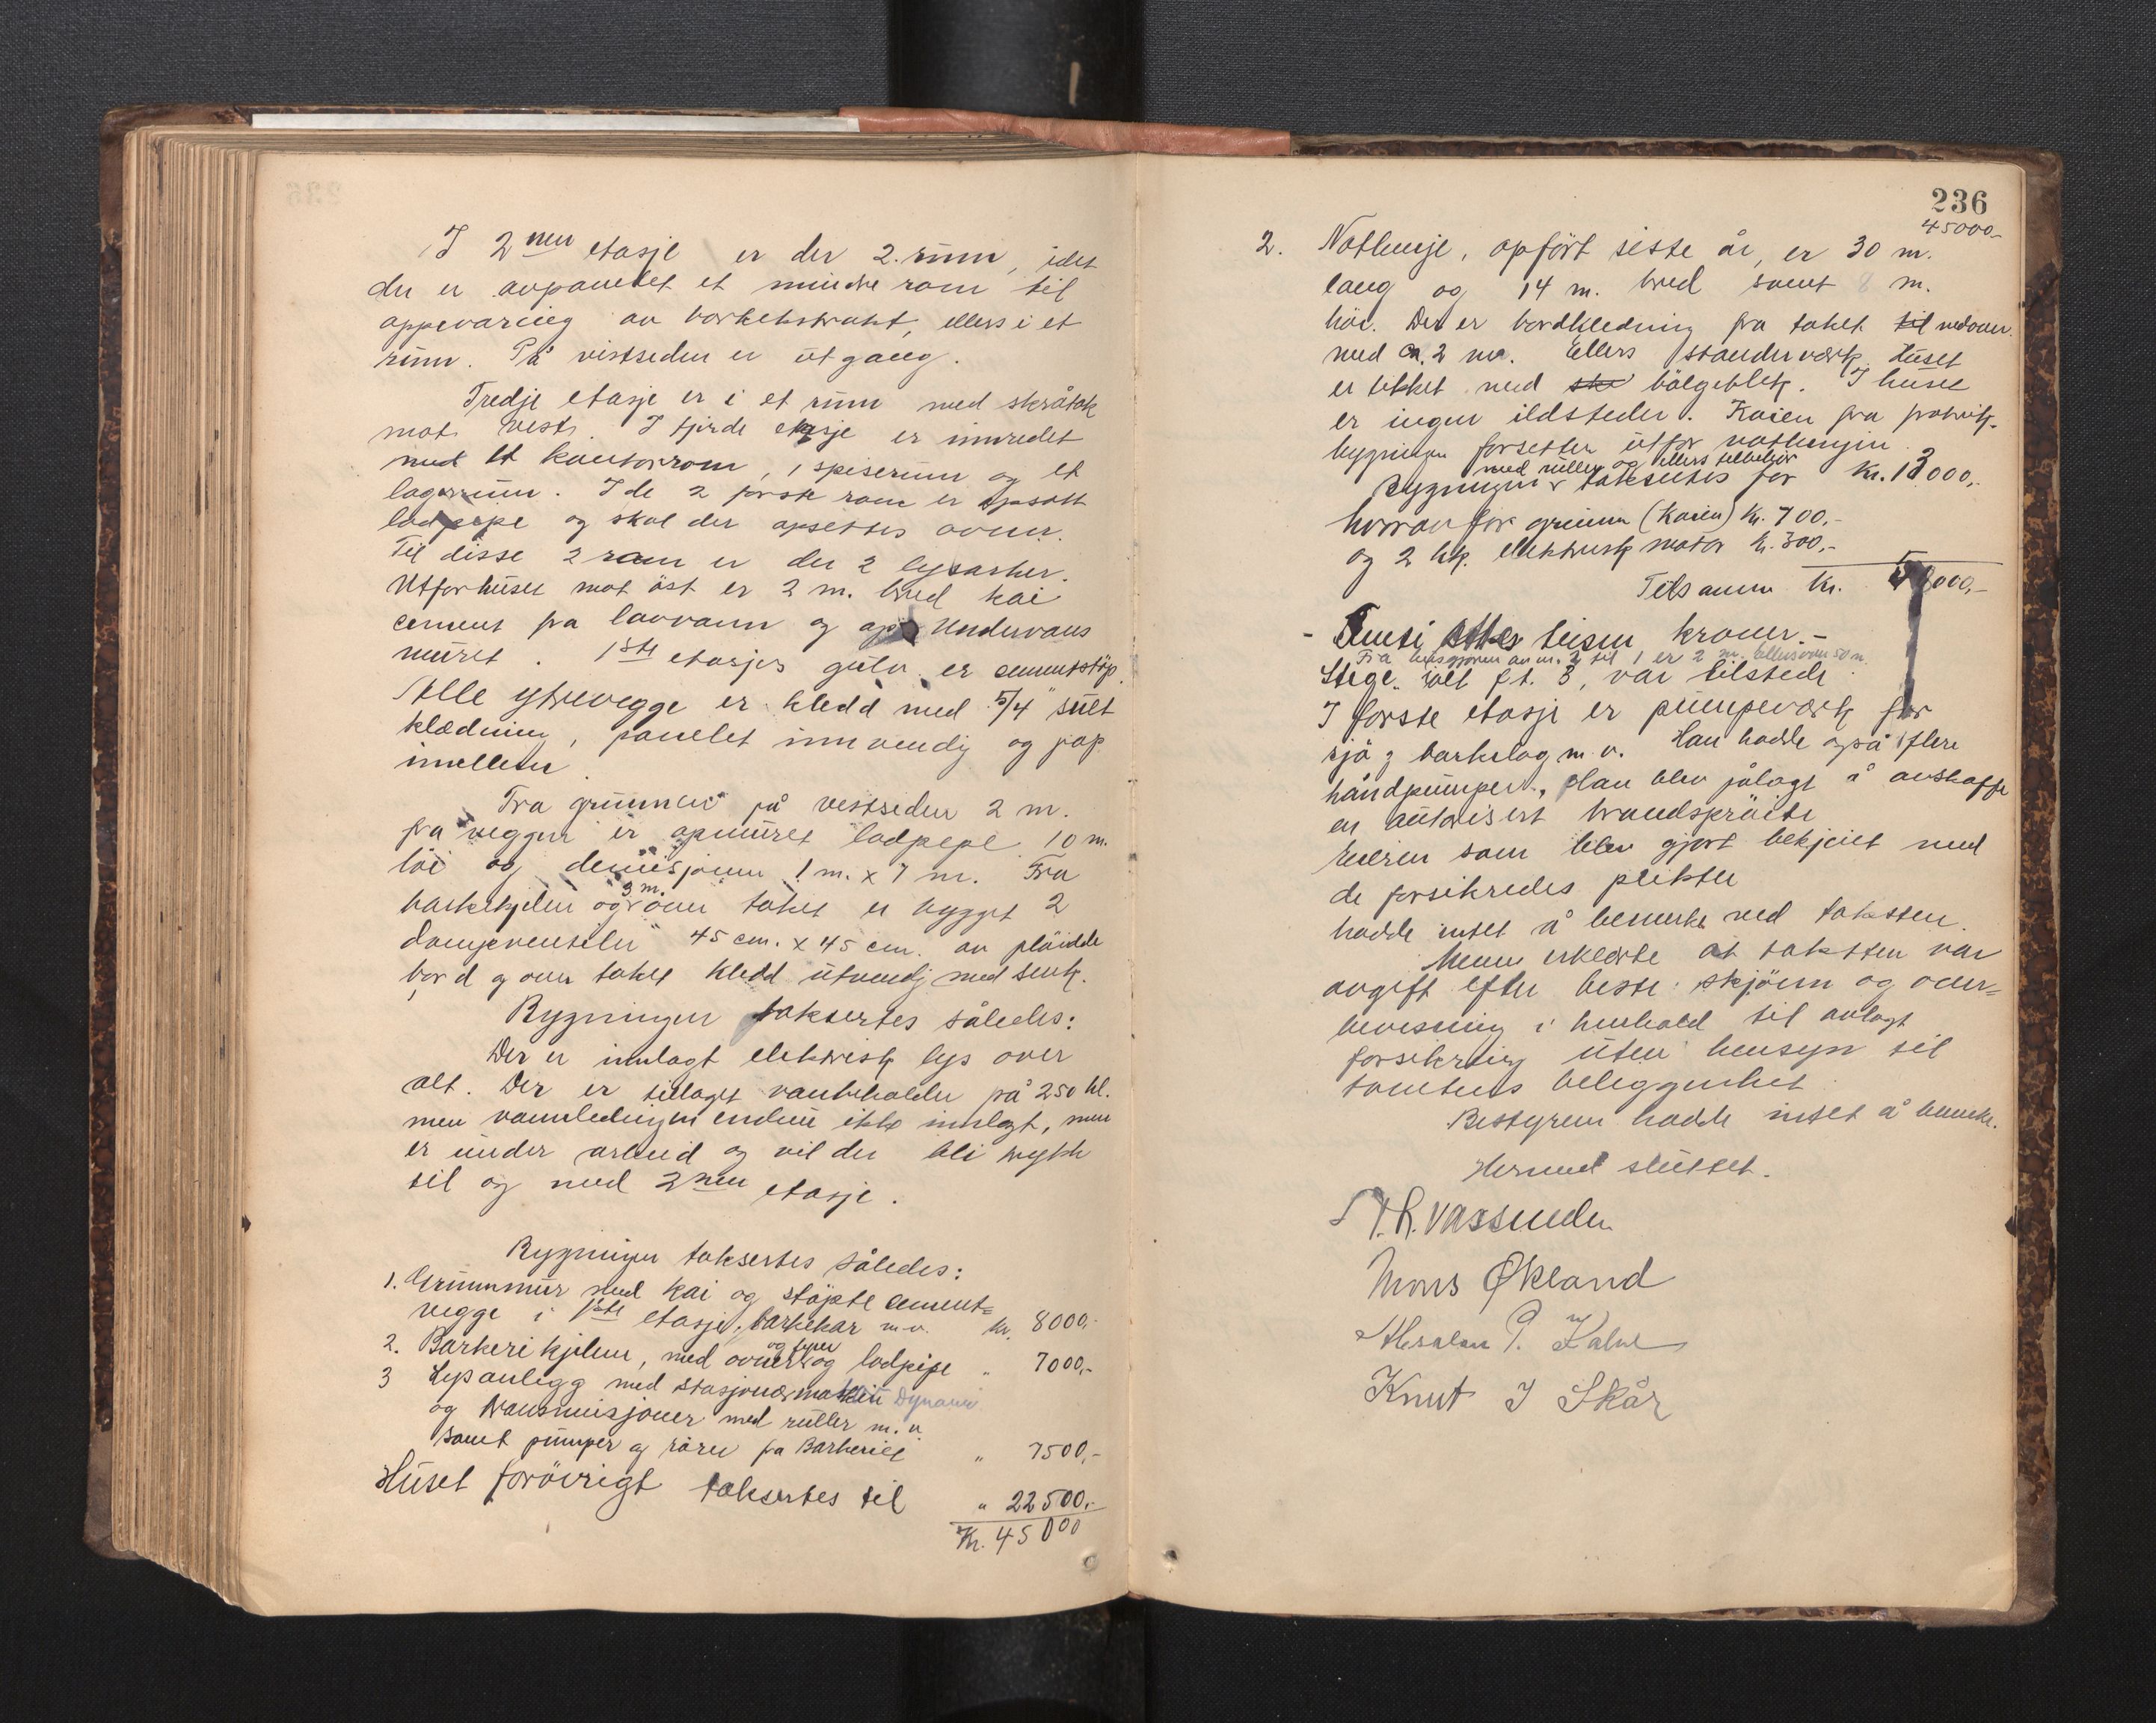 I 2nen etasje er der 2. rum, idet
der er avpanelet et mindre rom til
oppevaring av barkekstrakt, ellers i et
rum. På vestsiden er utgang.
Tredje etasje er i et rum med skråtak
mot vest. I fjerde etasje er innredet
med et kontorrom, 1 spiserum og et
lagerrum. I de 2 første rom er opsatt
lodpipe og skal der opsettes ovner.
Til disse 2 rom er der 2 lysarker.
Utfor huset mot öst er 2 m. bred kai
cement fra lavvann og op. Undervans
muret. 1ste etasjes gulv er cementstöp.
Alle ytrevegge er kledd med 5/4" sult
klædning, panelet innvendig og pap
imellem.
Fra grunnen på vestsiden 2 m.
fra veggen er opmuret lodpepe 10 m.
höi og demisjonen 1 m. x 7 m. Fra
barkekjelen og 3 m. over taket er bygget 2
dampventiler 45 cm. x 45 cm. av plöidde
bord og over taket kledd utvendig med sink.
Bygningen taksertes således:
Der er innlagt elektrisk lys over
alt. Der er tillaget vannbeholder på 250 hl.
men vannledningen endnu ikke innlagt, men
er under arbeid og vil der bli trykk
til og med 2nen etasje.
Bygningen taksertes således:
1. Grunnmur med kai og stöpte cement=
vegge i 1ste etasje, barkekar m.v. kr. 8000.-
2. Barkeri kjelen, med ovner og fyrer og lodpipe " 7000,-
3 Lysanlegg med stasjonærmaskin Dynamo
og transmisjoner med ruller m.v.
samt pumper og rörer fra Barkeriet " 7500,-
Huset forövrigt taksertes til " 22500,-
Kr. 45000
236
45000-
2. Nothenje, opfört siste år, er 30 m.
lang og 14 m. bred samt 8 m.
höi. Der er bordkledning fra taket til nedover
med ca. 2 m. Ellers standerverk. Huset
er tekket med bölgeblik. I huset
er ingen ildsteder. Kaien fra fabrik-
bygningen forsetter utfor nothengin.
med ruller og ellers tilbehör
Bygningen taksertes for Kr. 13000,-
hvorav for grunn (Kaien) kr. 700,-
og 2 hk. elektrisk motor kr. 300,-
Tilsammen Kr. 58000,-
- Femti otte tusen kroner.-
Fra av nr. 2 til 1 er 2 m. ellers over 50 m.
Stige, ialt st. 3, var tilstede.
I förste etasje er pumpeverk for
sjö og barkelag m.v. Han hadde også flere
håndpumper. Han blev pålagt å anskaffe
en autorisert brandspröite
Eieren som blev gjort bekjent med
de forsikredes plikter
hadde intet å bemerke ved taksten.
Menn erklærte at taksten var
avgitt efter beste skjönn og over=
bevisning i henhold til avlagt
forsikring uten hensyn til
tomtens beliggenhet
Bestyreren hadde intet å bemerke.
Hermed sluttet.
T.R. Vassenden
Mons Økland
P. Kalve
Knut J Skår